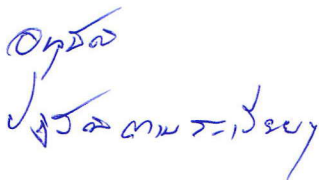 อนุมัติ
ปฏิบัติตามระเบียบฯ